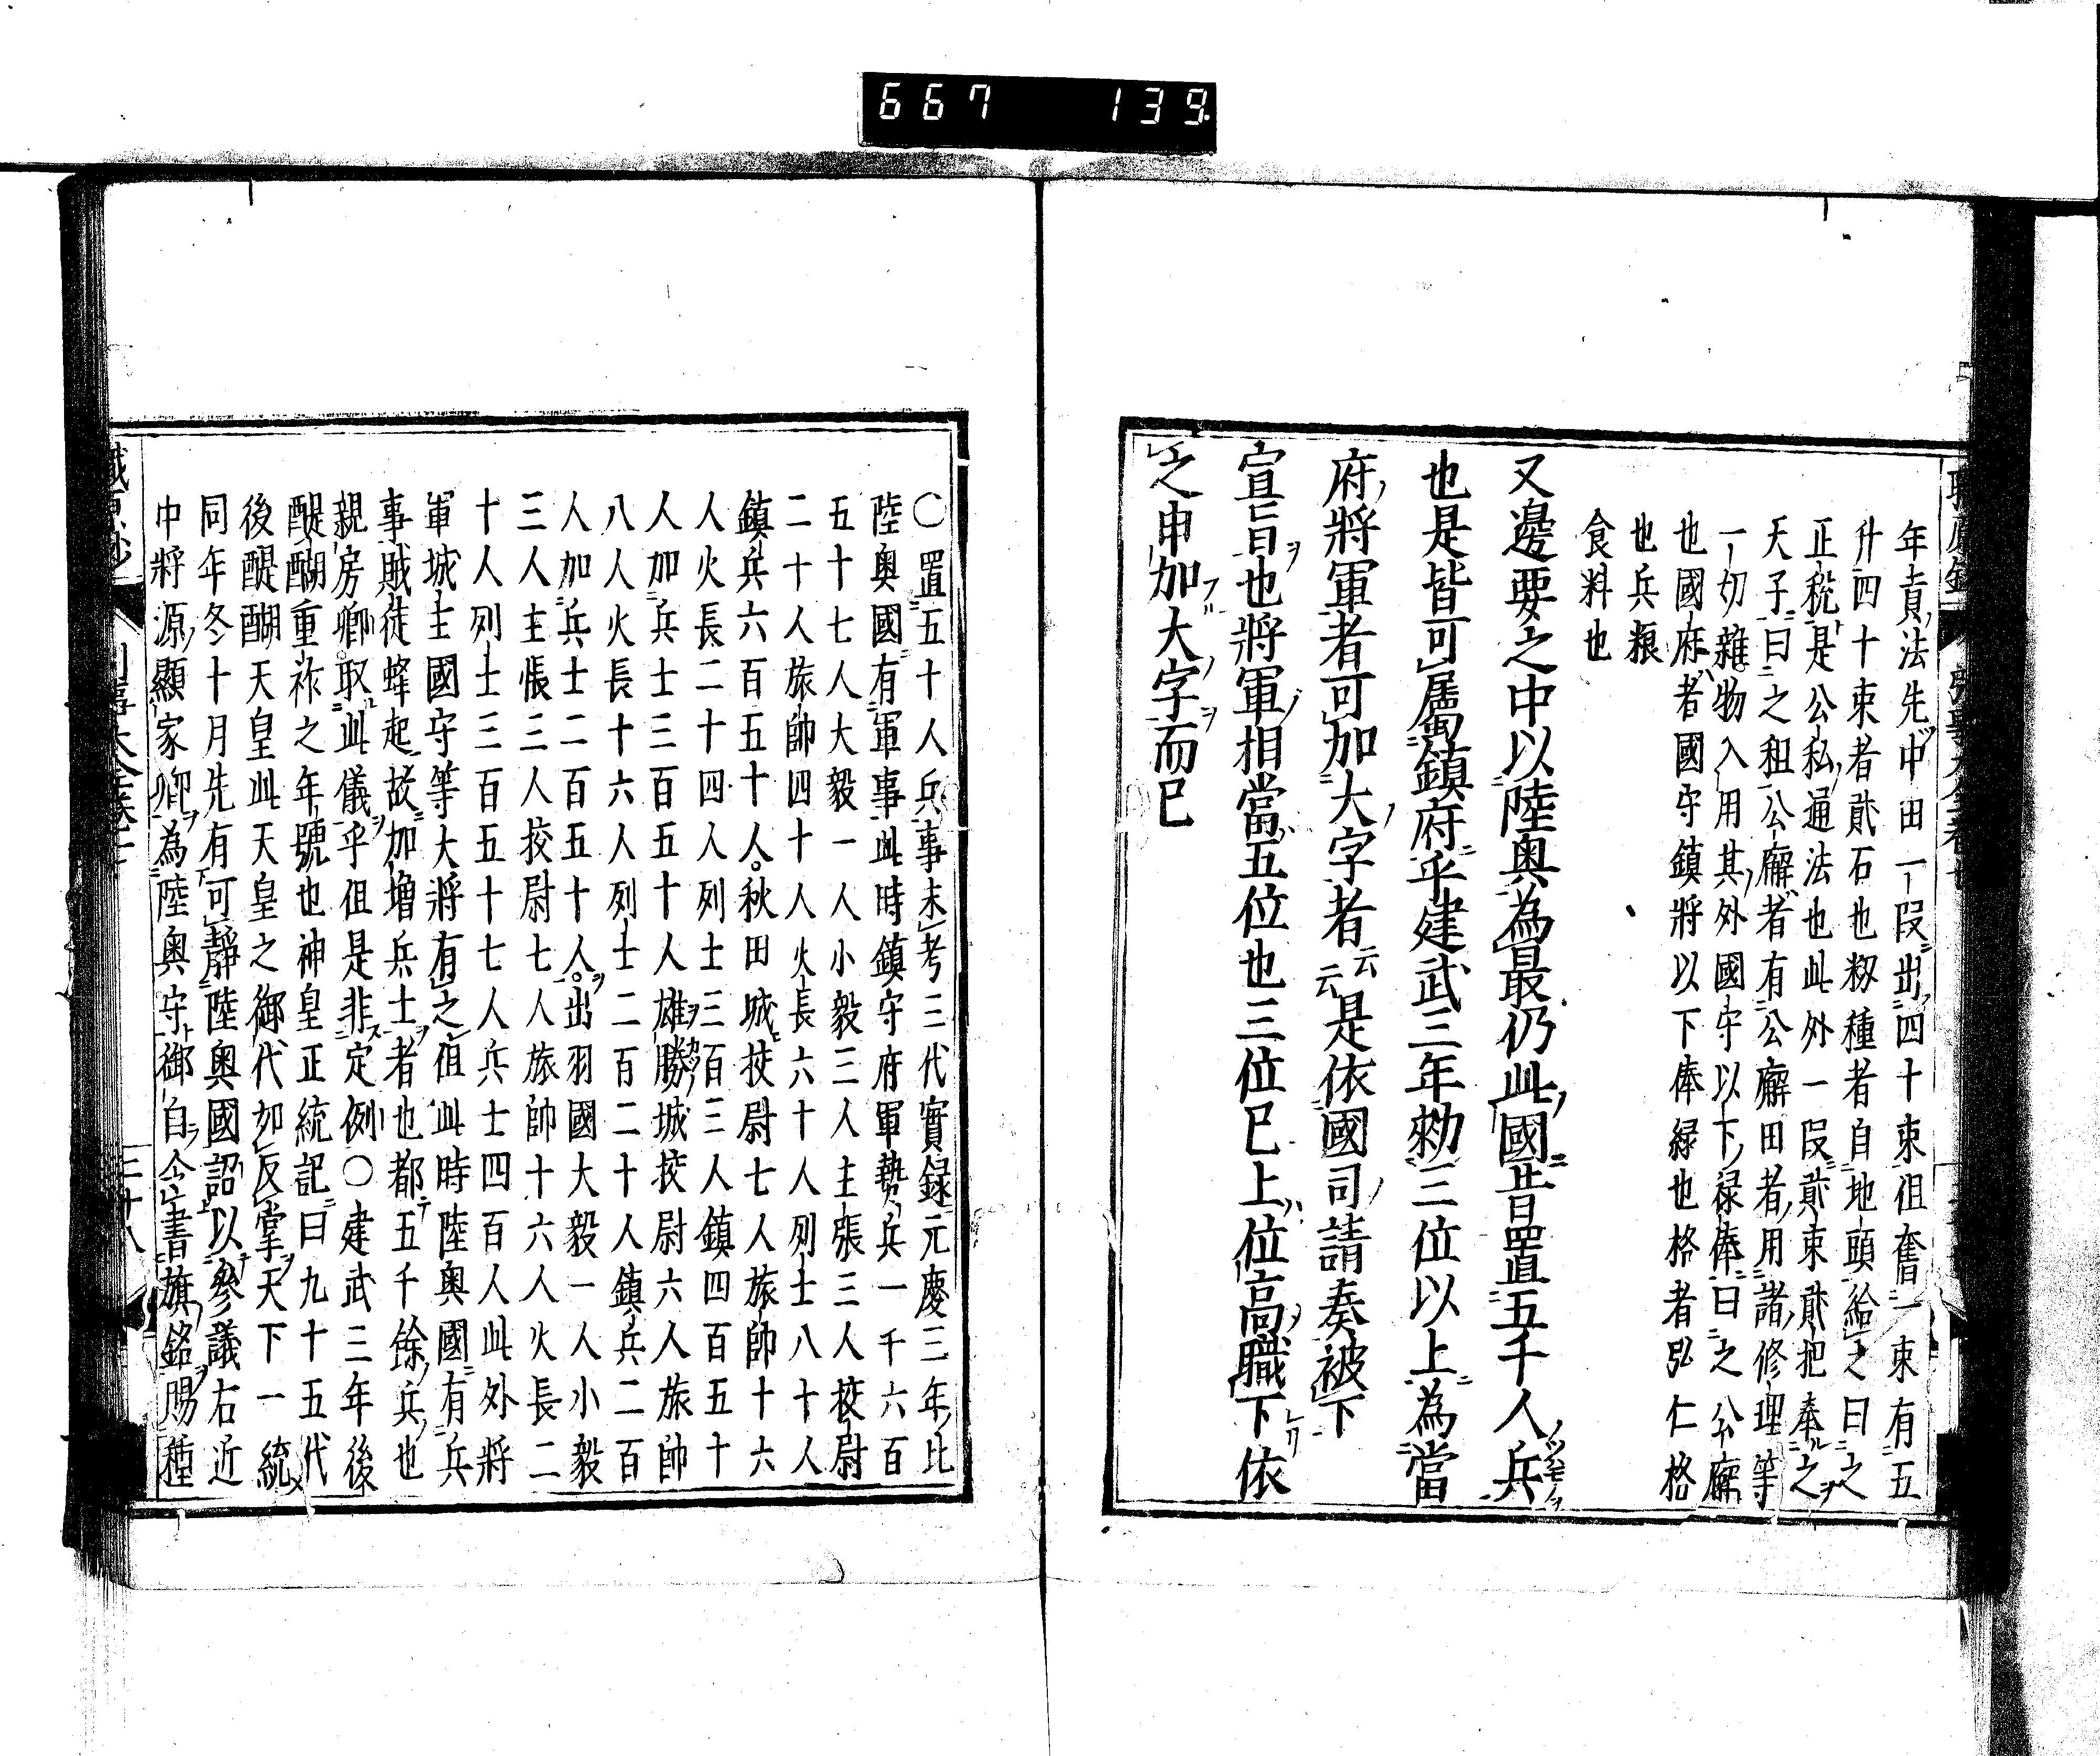 667 139
年貢法先中田一段出四十束徂奮一束有五
升四十束者貮石也籾種者自地頭給之曰之
正税是公私通法也此外一段貮束貮把奉之
天子曰之租公廨者有公廨田者用諸修理等
一切雜物入用其外國守以下禄俸曰之公廨
也國府者國守鎮將以下俸緑也格者弘仁格
也兵粮
食料也
又邊要之中以陸奥為最仍此國昔置五千人兵
也是皆可属鎮府乎建武三年勅三位以上為當
府將軍者可加大字者云云是依國司請奏被下
宣旨也將軍相當五位也三位已上位高職下依
之申加大字而已
〇置五十人兵事未考三代實録元慶三年比
陸奥國有軍事此時鎮守府軍勢兵一千六百
五十七人大毅一人小毅三人主張三人挍尉
二十人旅帥四十人火長六十人列士八十人
鎮兵六百五十人秋田城挍尉七人旅帥十六
人火長二十四人列士三百三人鎮四百五十
人加兵士三百五十人雄勝城挍尉六人旅帥
八人火長十六人列士二百二十人鎮兵二百
人加兵士二百五十人出羽國大毅一人小毅
三人主帳三人挍尉七人旅帥十六人火長二
十人列士三百五十七人兵士四百人此外將
軍城主國守等大將有之徂此時陸奥國有兵
事賊徒蜂起故加増兵士者也都五千餘兵也
親房卿取此儀乎但是非定例〇建武三年後
醍醐重祚之年號也神皇正統記曰九十五代
後醍醐天皇此天皇之御代如反掌天下一統
同年冬十月先有可靜陸奥國詔以參議右近
中將源顯家卿為陸奥守御自令書旗銘賜種